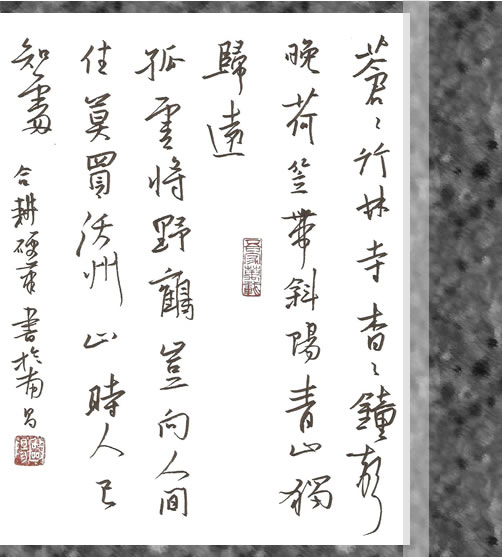 蒼〻竹林寺杳〻鐘聲
晚荷笠帶斜陽青山獨
歸遠
孤雲將野鶴豈向人間
住莫買沃州山時人已
知處
合耕硬筆書於南昌